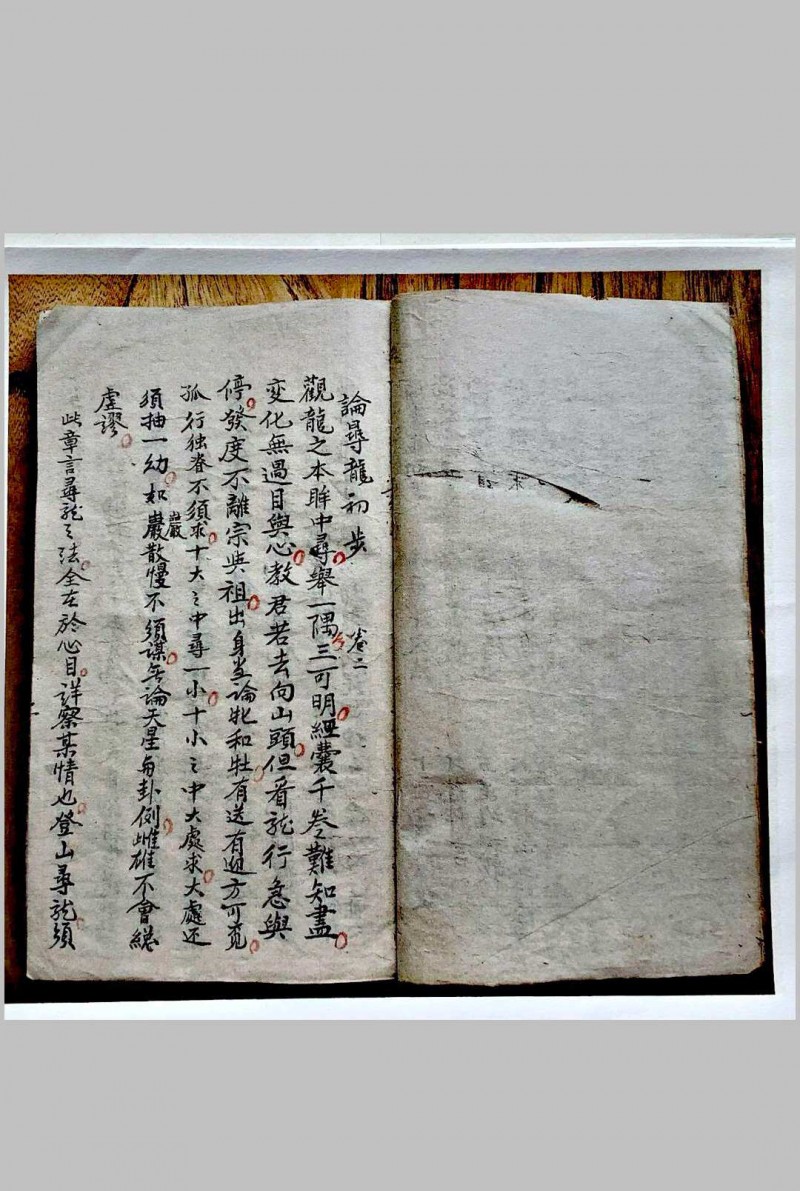 論尋龍初步 卷二
觀龍之本眸中尋舉一隅三可明經囊千卷難知盡
変化無過目與心教君若去向山頭但看龍行急與
停發度不離宗與祖出身坐論牝和牡有送有迎方可覓
孤行独眷不須求十大之中尋一小十小之中大處求大處还
須抽一幼如巖巖散慢不須謀无論天星与卦例雌雄不會総
虚謬
此章言尋龍之法全在於心目詳察某情也登山尋龍須